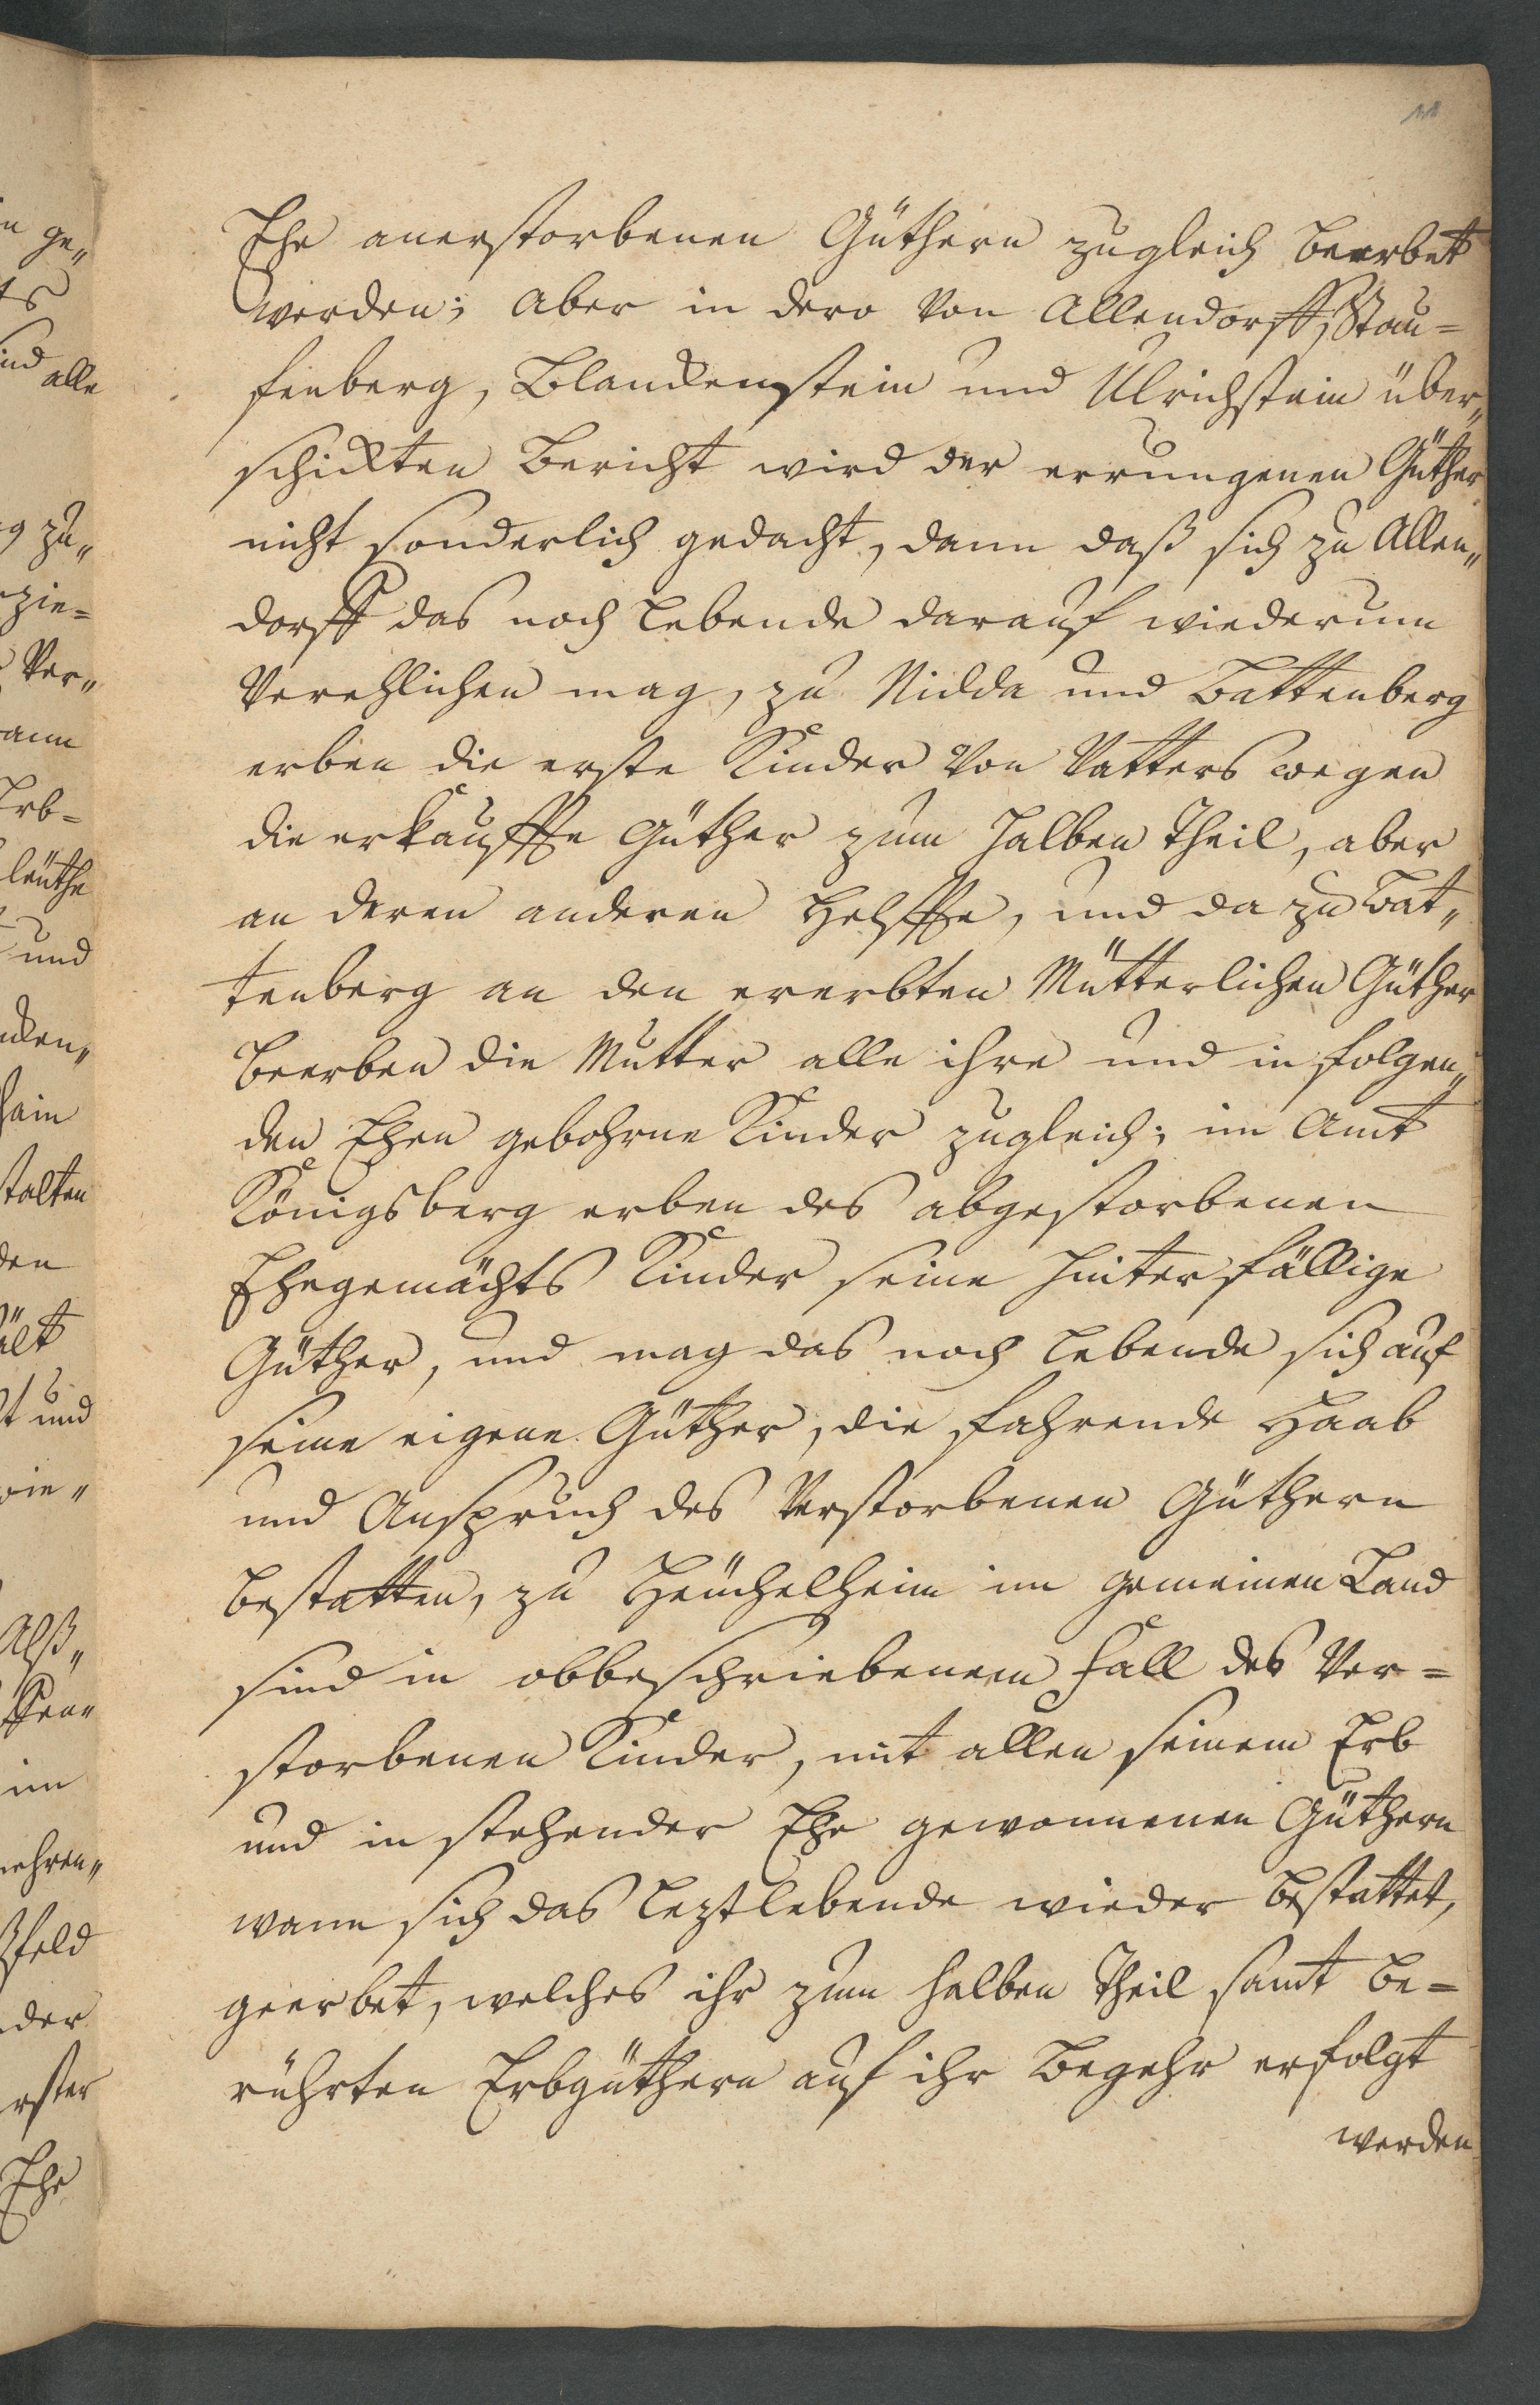 Ehe anerstorbenen Güthern zugleich beerbet
werden; aber in dero von Allendorff, Stau=
fenberg, Blanckenstein und Ulrichstein über„
schickten Bericht wird der errungenen Güther
nicht sonderlich gedacht, dann daß sich zu Allen„
dorff das noch lebende darauf wiederum
Verehlichen mag, zu Nidda und Battenberg
erben die erste Kinder von Vatters wegen
die erkauffte Güther zum halben Theil, aber
an deren anderen Helffte, und da zu Bat„
tenberg an den ererbten Mütterlichen Güther
beerben die Mutter alle ihre und in folgen„
den Ehen gebohrne Kinder zugleich; im Amt
Königsberg erben des abgestorbenen
Ehegemächts Kinder seine hinterfällige
Güther, und mag das noch lebende sich auf
seine eigene Güther, die fahrende Haab
und Anspruch des Verstorbenen Güthern
bestatten, zu Heuchelheim im gemeinen Land
sind in obbeschriebenem fall des Ver=
storbenen Kinder, mit allen seinem Erb
und in stehender Ehe gewonnenen Güthern
wann sich das leztlebende wieder bestattet,
geerbet, welches ihr zum halben Theil samt be=
rührten Erbgüthern auf ihr Begehr erfolgt
werden